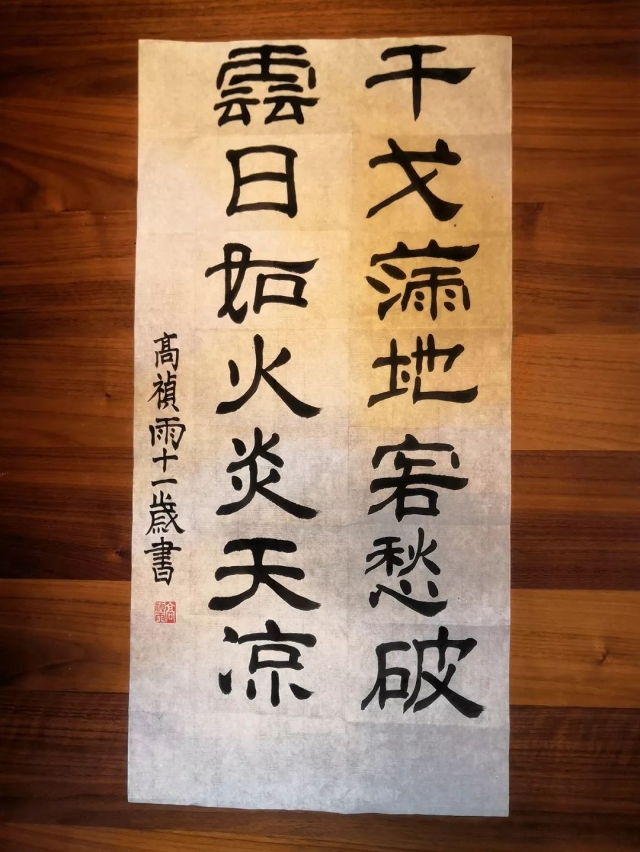 干戈滿地客愁破
雲日如火炎天凉
髙禎雨十一歲書